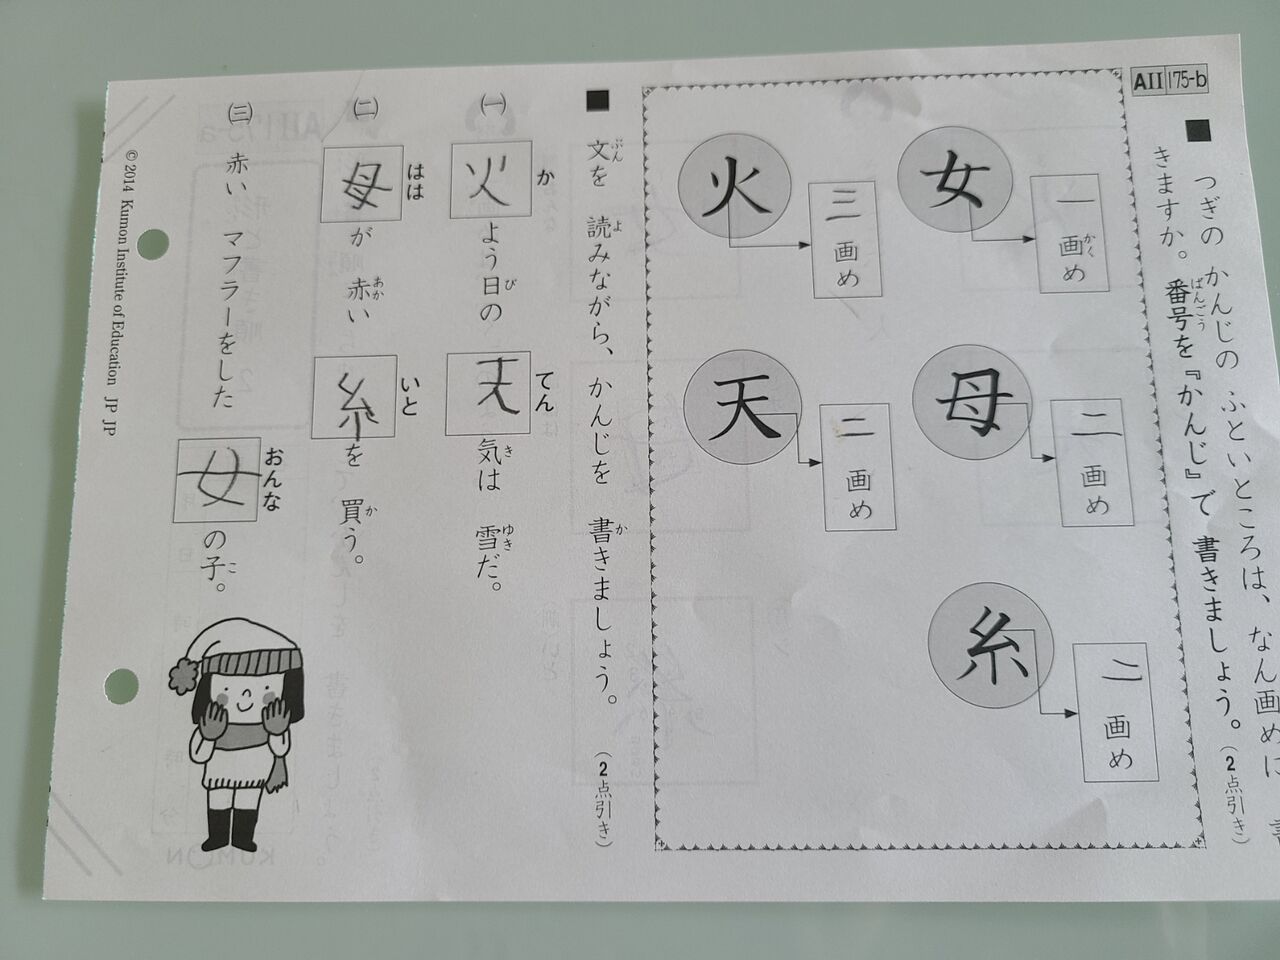 AII 175-b
■ つぎの かんじの ふといところは、なん画めに 書
きますか。番号を『かんじ』で 書きましょう。(2点引き)
ばんごう
女
一画め
かく
母
二画め
糸
二画め
火
三画め
天
二画め
■ 文を 読みながら、かんじを 書きましょう。(2点引き)
ぶん よ か
㈠ 火よう日の 天気は 雪だ。
か び てん き ゆき
㈡ 母が 赤い 糸を 買う。
はは あか いと か
㈢ 赤い マフラーをした 女の子。
おんな こ
© 2014 Kumon Institute of Education JP JP